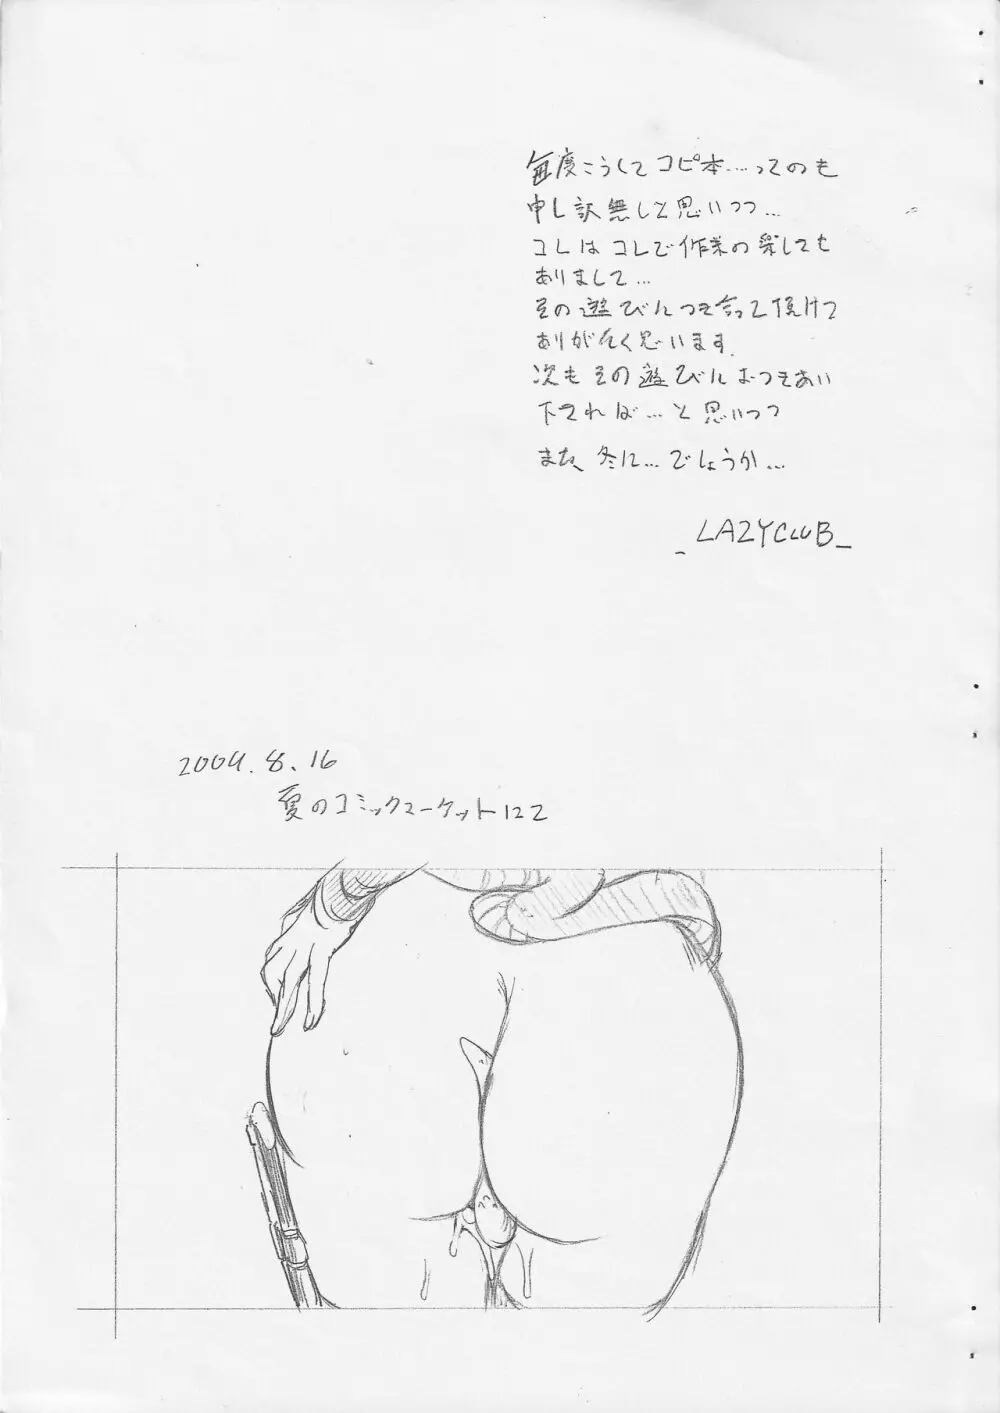 毎度こうしてコピ本……ってのも
申し訳無しと思いつつ…
コレはコレで作業の楽しても
ありまして…
その遊びにつき合って頂けて
ありがたく思います。
次もその遊びにおつきあい
下されば…と思いつつ
また、冬に…でしょうか…
_LAZYCLUB_
2009.8.16
夏のコミックマーケットにて